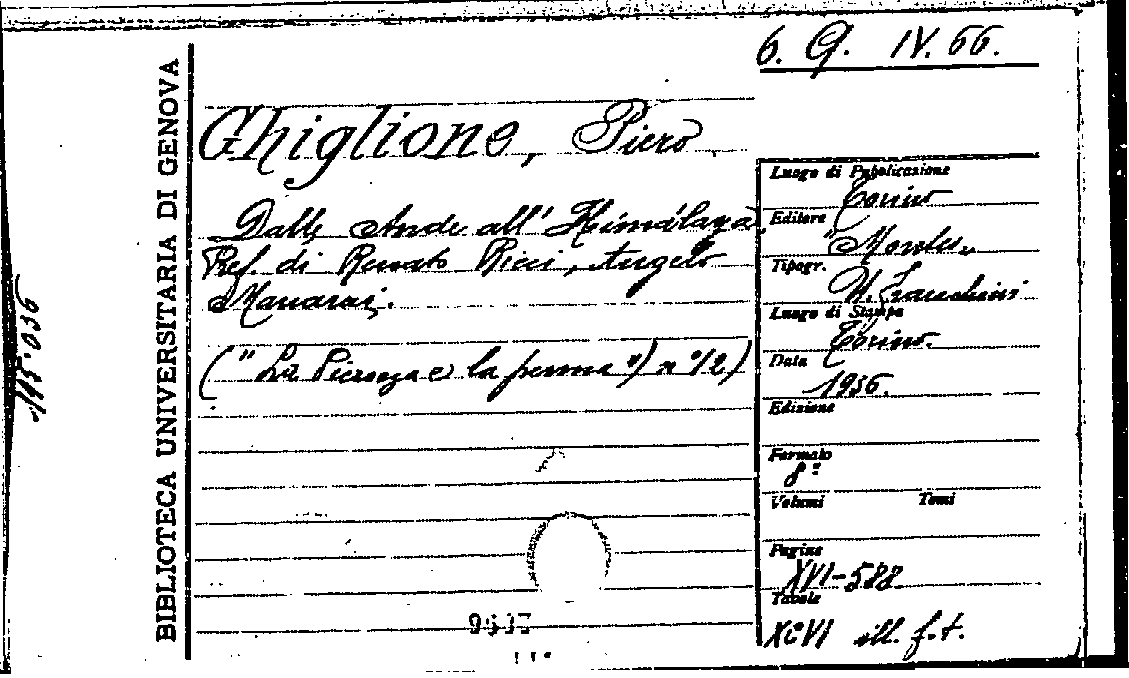 6. Q. IV. 66.
BIBLIOTECA UNIVERSITARIA DI GENOVA
Ghiglione, Piero
Dalle Ande all' Himàlaya.
Pref. di Renato Ricci, Angelo
Manaresi.
(" La Picozza e la penna ") n° 12)
Luogo di Pubblicazione
Torino
Editore
"Montes"
Tipogr.
Luogo di Stampa
Torino.
Data
1936.
Edizione
Formato
8°
Volumi Tomi
Pagine
XVI-588
Tavole
XCVI ill. f.t.